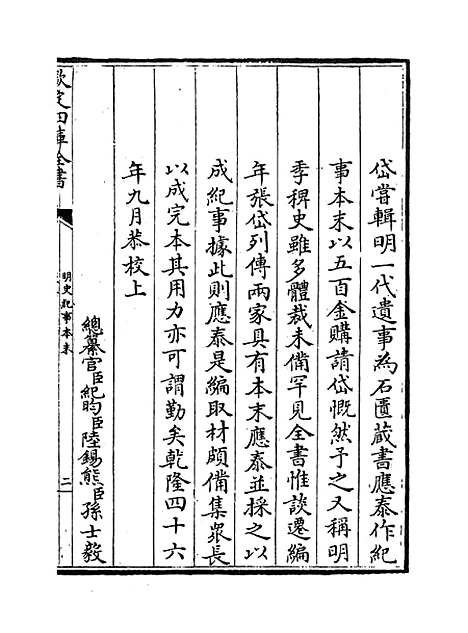 岱嘗輯明一代遺事為石匱藏書應泰作紀
事本末以五百金購請岱慨然予之又稱明
季稗史雖多體裁未備罕見全書惟談遷編
年張岱列傳兩家具有本末應泰並採之以
成紀事據此則應泰是編取材頗備集衆長
以成完本其用力亦可謂勤矣乾隆四十六
年九月恭校上
總纂官臣紀昀臣陸錫熊臣孫士毅
欽定四庫全書
明史紀事本末
二